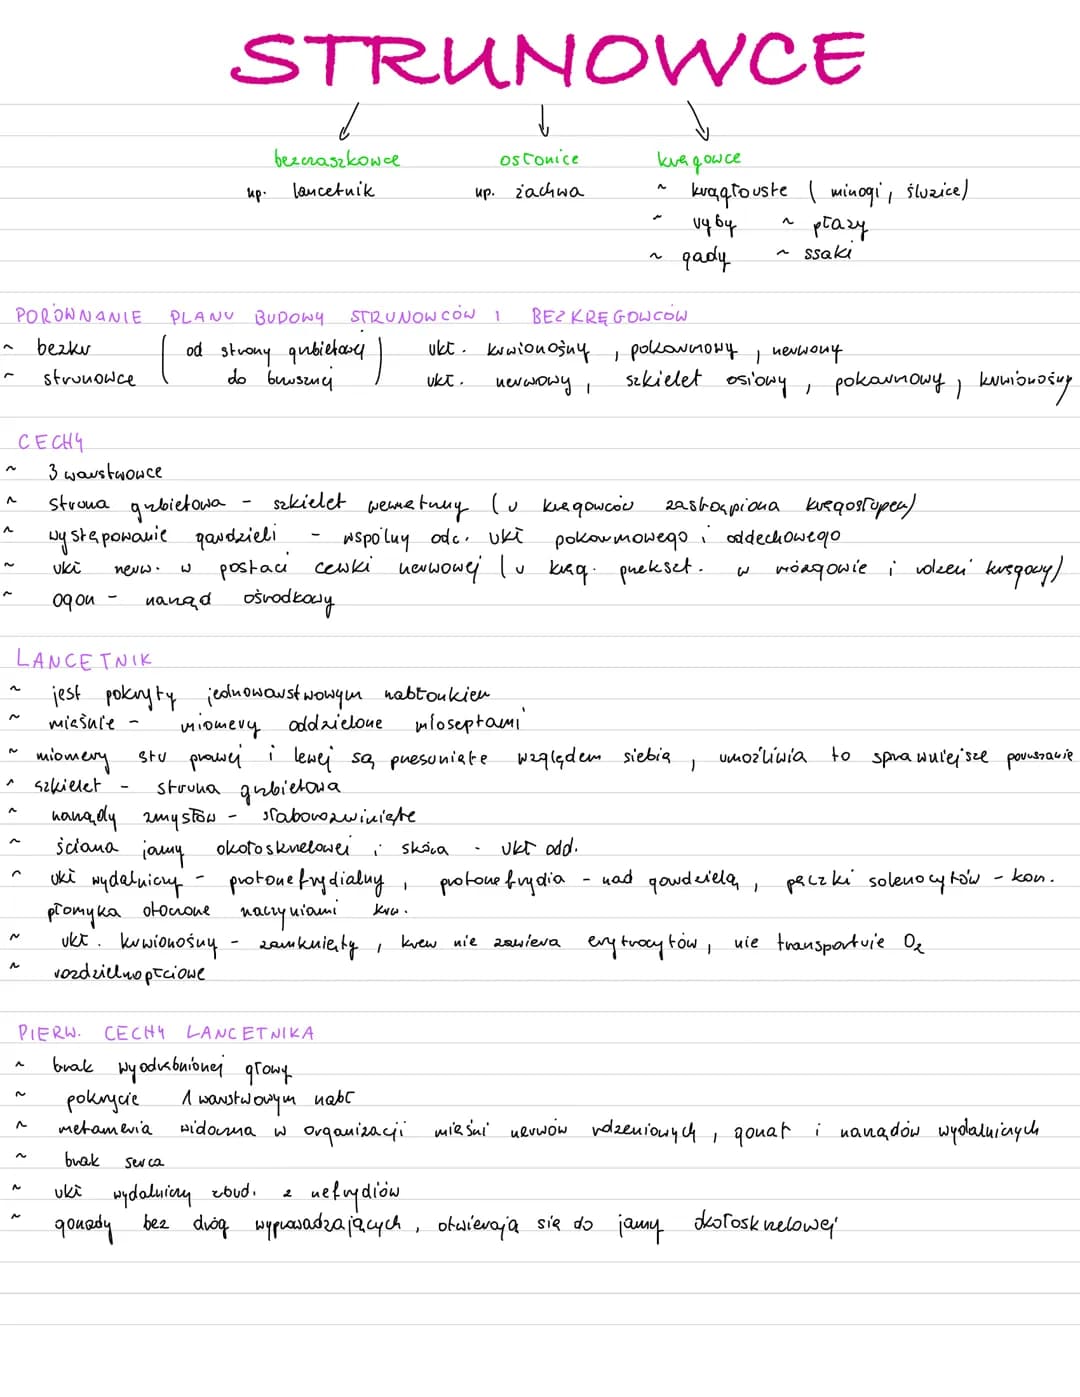 STRUNOWCE
bezczaszkowce osłonice kręgowce
np. lancetnik np. żachwa ~ krągłouste ( minogi, śluzice)
~ ryby ~ ptazy
~ gady ~ ssaki
PORÓWNANIE PLANU BUDOWY STRUNOWCÓW I BEZKRĘGOWCÓW
~ bezkr ( od strony grzbietowej ) ukł. krwionośny, pokarmowy, nerwowy
~ strunowce ( do brzusznej ) ukł. nerwowy, szkielet osiowy, pokarmowy, krwionośny
CECHY
~ 3 warstwowce
~ struna grzbietowa - szkielet wewnętrzny (u kręgowców zastąpiona kręgosłupem)
~ występowanie gardzieli - wspólny odc. ukł pokarmowego i oddechowego
~ ukł nerw. w postaci cewki nerwowej (u kręg. przekszt. w mózgowie i rdzeń kręgowy)
~ ogon - narząd ośrodkowy
LANCETNIK
~ jest pokryty jednowarstwowym nabłonkiem
~ mięśnie - miomery oddzielone mioseptami
~ miomery str prawej i lewej są przesunięte względem siebią, umożliwia to sprawniejsze poruszanie
~ szkielet - struna grzbietowa
~ narządy zmysłów - słaborozwinięte
~ ściana jamy okołoskrzelowej i skóra - ukł odd.
~ ukł wydalniczy - protonefrydialny, protonefrydia - nad gardzielą, pęczki solenocytów - kom.
płomyka otoczone naczyniami krw.
~ ukł. krwionośny - zamknięty, krew nie zawiera erytrocytów, nie transportuje O₂
~ rozdzielnopłciowe
PIERW. CECHY LANCETNIKA
~ brak wyodrębnionej głowy
~ pokrycie 1 warstwowym nabł
~ metameria widoczna w organizacji mięśni nerwów rdzeniowych, gonad i narządów wydalniczych
~ brak serca
~ ukł wydalniczy zbud. z nefrydiów
~ gonady bez dróg wyprowadzających, otwierają się do jamy okołoskrzelowej